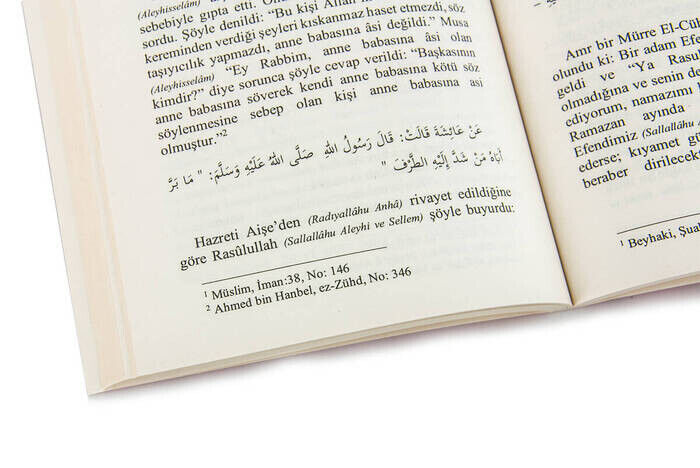 (Aleyhisselâm)
sebebiyle gıpta etti.
sordu. Şöyle denildi: "Bu kişi Allah
kereminden verdiği şeyleri kıskanmaz haset etmezdi, söz
taşıyıcılık yapmazdı, anne babasına âsi değildi." Musa
(Aleyhisselâm) "Ey Rabbim, anne babasına âsi olan
kimdir?" diye sorunca şöyle cevap verildi: "Başkasının
anne babasına söverek kendi anne babasına kötü söz
söylenmesine sebep olan kişi anne babasına asi
olmuştur."2
عَنْ عَائِشَةَ قَالَتْ: قَالَ رَسُولُ اللهِ صَلَّى اللهُ عَلَيْهِ وَسَلَّمَ: " مَا بَرَّ
أَبَاهُ مَنْ شَدَّ إِلَيْهِ الطَّرْفَ "
Hazreti Aişe'den (Radıyallâhu Anhâ) rivayet edildiğine
göre Rasûlullah (Sallallâhu Aleyhi ve Sellem) şöyle buyurdu:
1 Müslim, İman:38, No: 146
2 Ahmed bin Hanbel, ez-Zühd, No: 346
Amr bir Mürre El-Cü
olundu ki: Bir adam Efe
geldi ve "Ya Rasu
olmadığına ve senin de
ediyorum, namazımı
Ramazan ayında
Efendimiz (Sallallâhu
ederse; kıyamet gü
beraber dirilecekt
1 Beyhaki, Şua